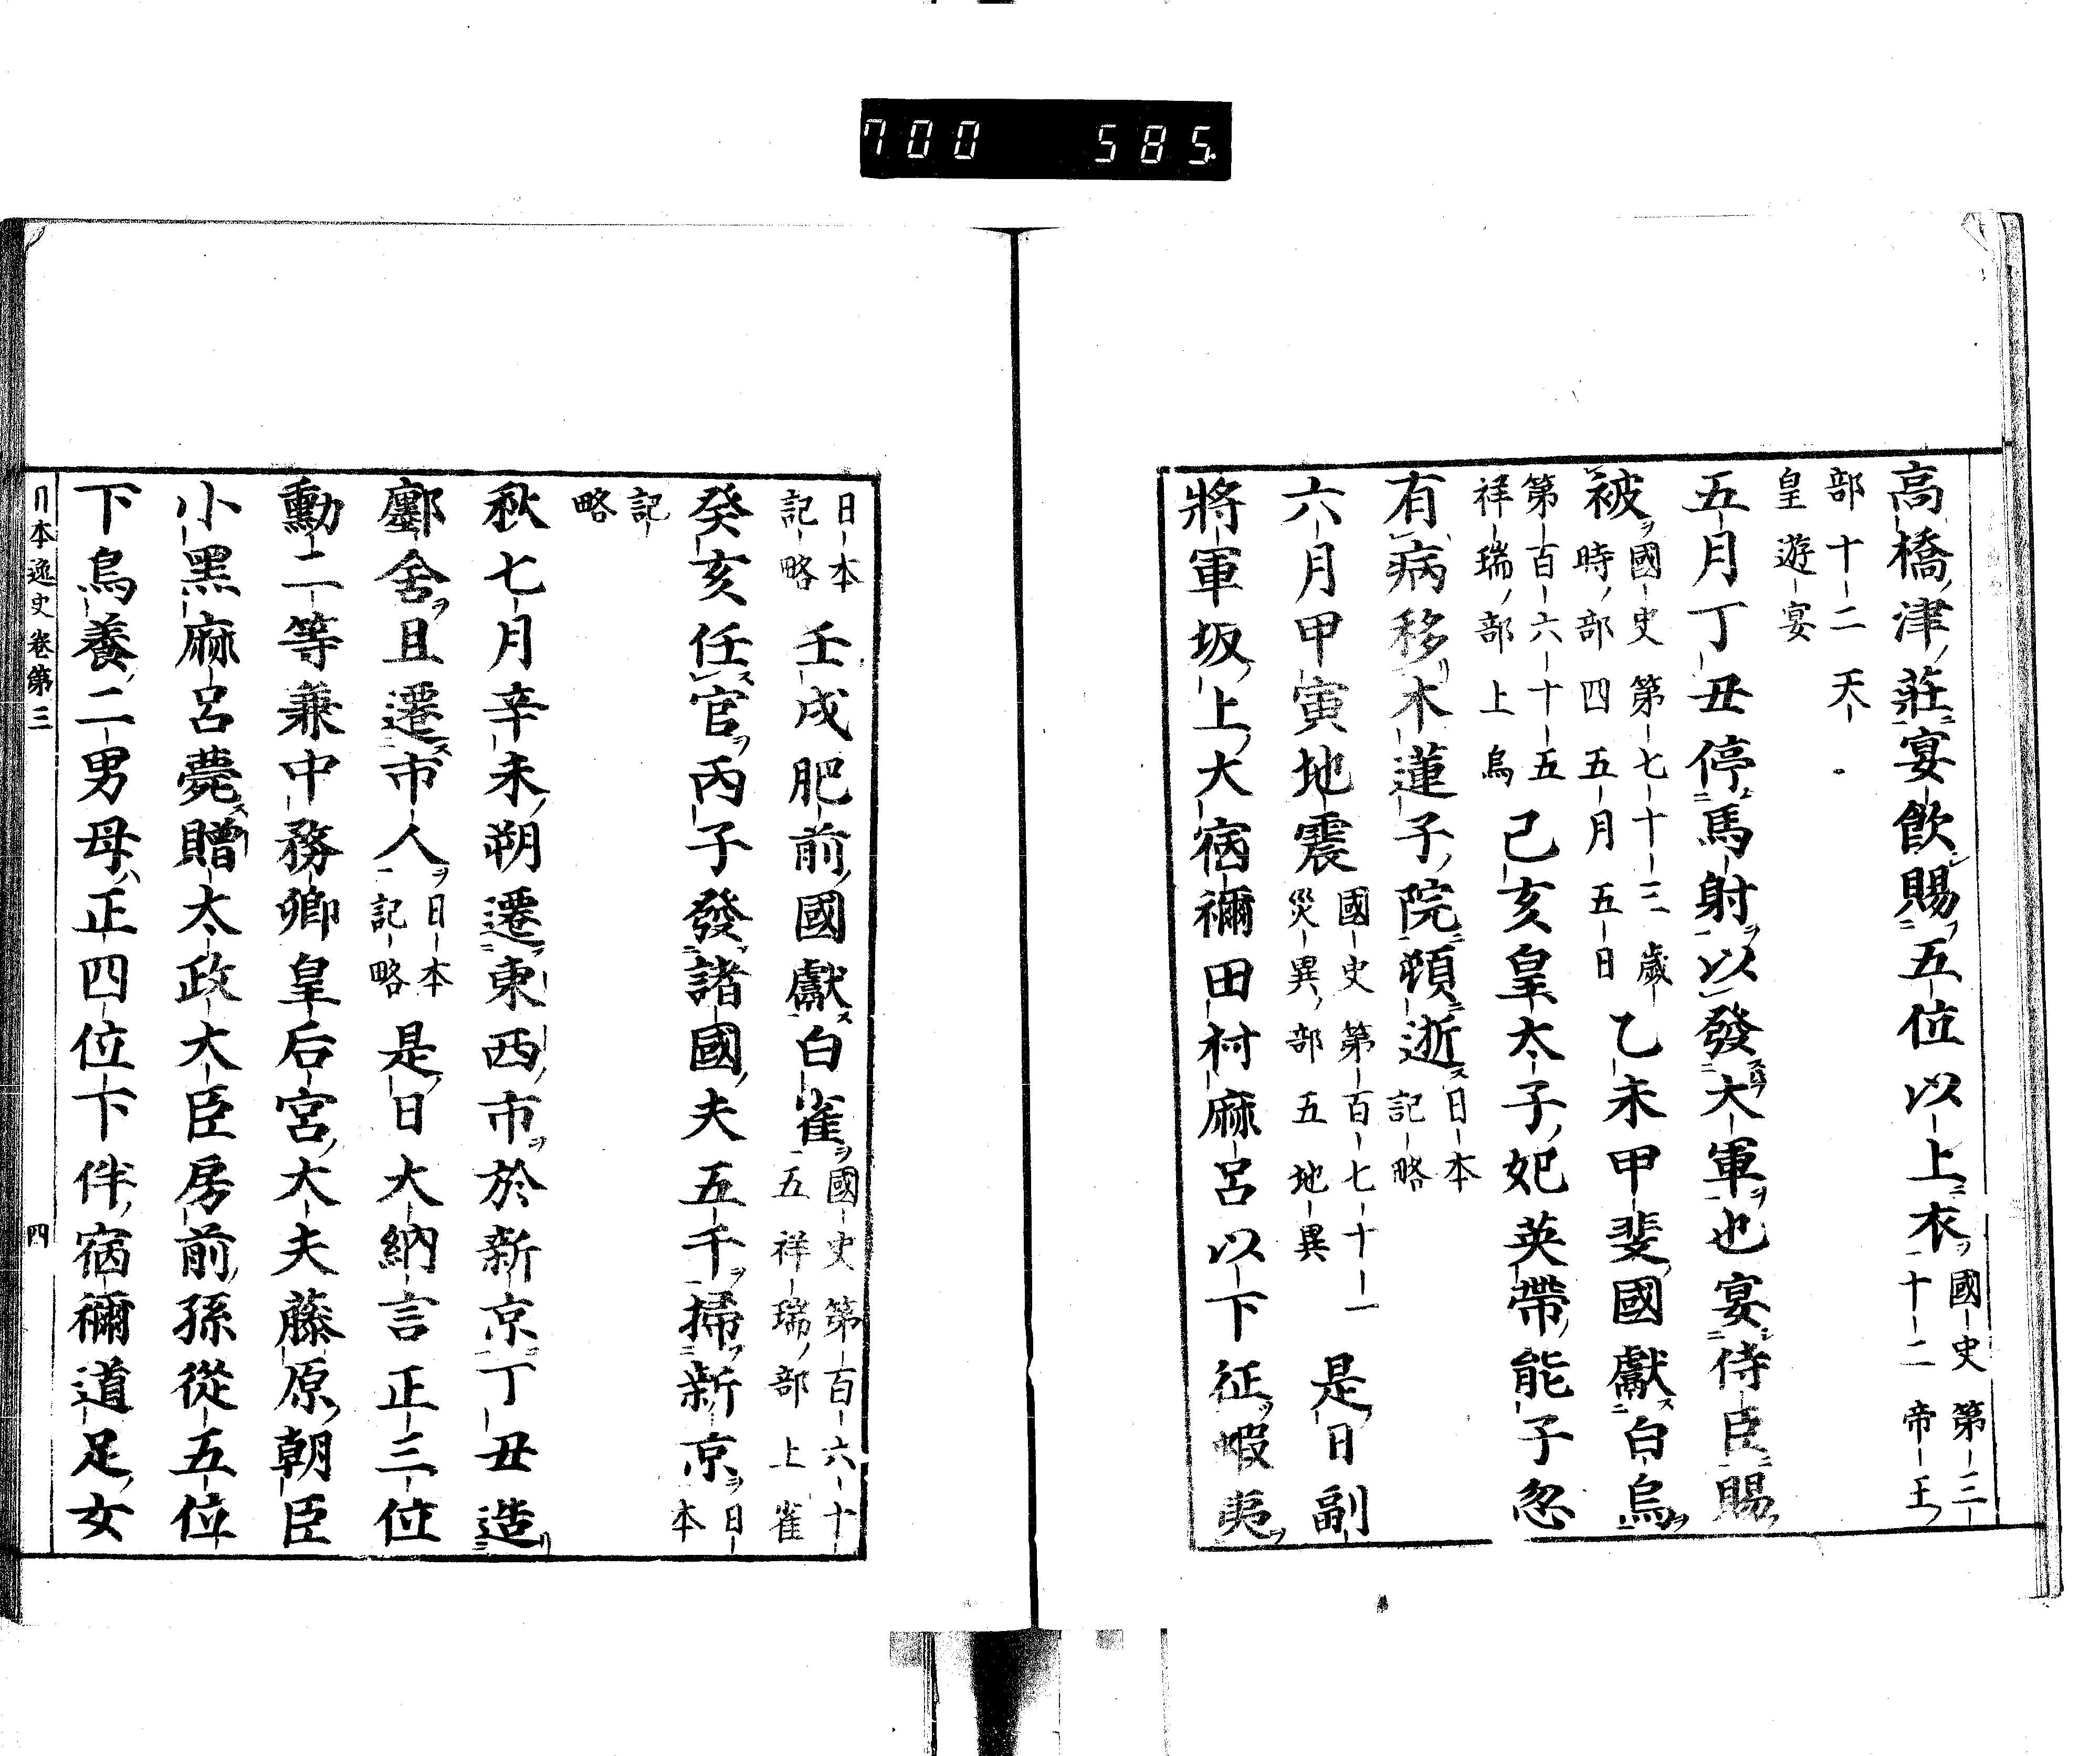 700 585
高橋津莊宴飮賜五位以上衣國史第三十二帝王
部十二天皇遊宴
五月丁丑停馬射以發大軍也宴侍臣賜
被國史第七十三歲時部四五月五日乙未甲斐國獻白烏
第百六十五祥瑞部上烏己亥皇太子妃英帶能子忽
有病移木蓮子院頓逝日本記略
六月甲寅地震國史第百七十一災異部五地異是日副
將軍坂上大宿禰田村麻呂以下征蝦夷
日本記略壬戌肥前國獻白雀國史第百六十五祥瑞部上雀
癸亥任官丙子發諸國夫五千掃新京日本
記略
秋七月辛未朔遷東西市於新京丁丑造
鄽舍且遷市人日本記略是日大納言正三位
勳二等兼中務卿皇后宮大夫藤原朝臣
小黑麻呂薨贈太政大臣房前孫從五位
下鳥養二男母正四位下伴宿禰道足女
日本逸史卷第三 四